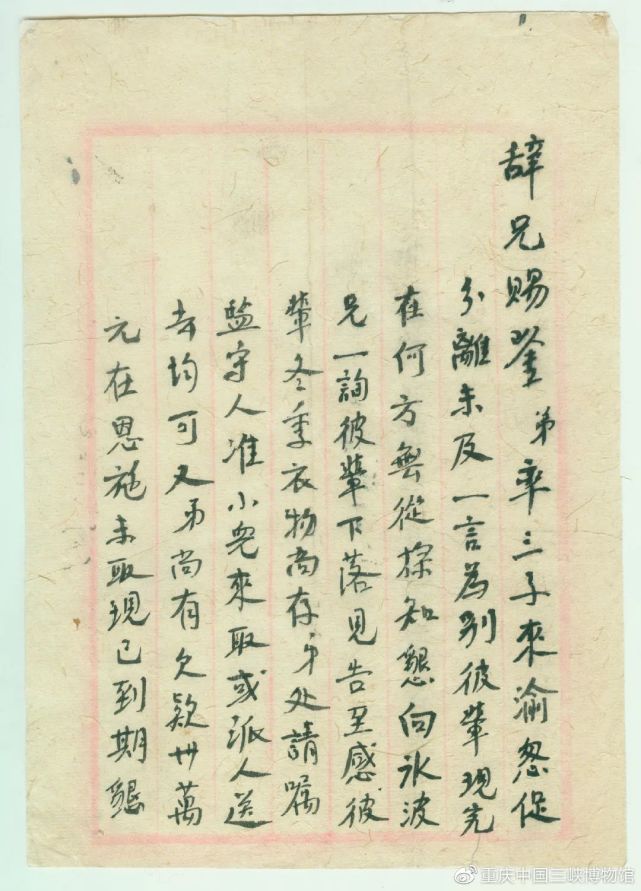 辞兄赐鉴弟率三子來渝怱促
分離未及一言為别彼輩現究
在何方無從探知懇向冰波
兄一詢彼輩下落見告至感彼
輩冬季衣物尚存弟处請嘱
監守人准小兒來取或派人送
去均可又弟尚有欠款卅萬
元在恩施未取現已到期懇
重庆中国三峡博物馆